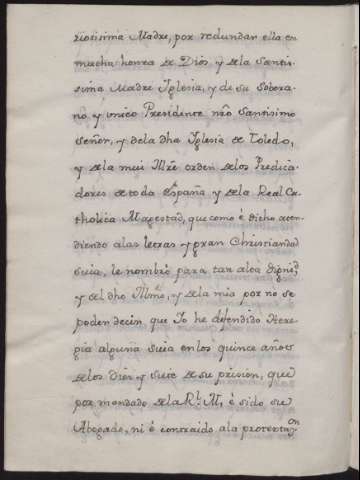 riosisima Madre, por redundar ella en
mucha honra de Dios, y de la Santis-
sima Madre Iglesia, y de su Sobera-
no y unico Presidente nro Santisimo
Señor, y dela dha Iglesia de Toledo,
y dela mui Ille orden delos Predica-
dores de toda España y dela Real Ca-
tholica Magestad, que como è dicho aten-
diendo alas letras y gran Christiandad
suia, le nombrò para tan alta dignid
y del dho Illmo, y dela mia por no se
poden decir que Io he defendido Here-
gia alguna suia en los quince años
delos Diez y siete de su prision, que
por mandado dela Rl. M. è sido su
Abogado, ni è contraido ala protestaon